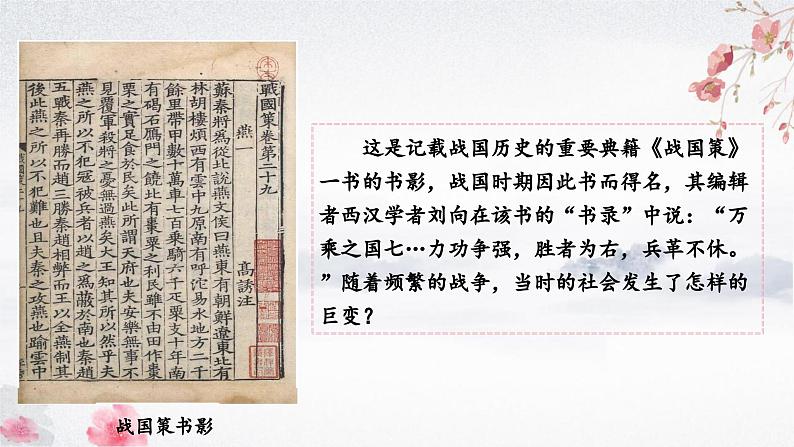 戰國策卷第二十九
燕一 高誘注
蘇秦將爲從北說燕文侯曰燕東有朝鮮遼東北有
林胡樓煩西有雲中九原南有呼沱易水地方二千
餘里帶甲數十萬車七百乘騎六千疋粟支十年南
有碣石鴈門之饒北有棗粟之利民雖不由田作棗
栗之實足食於民矣此所謂天府也夫安樂無事不
見覆軍殺將之憂無過燕矣大王知其所以然乎夫
燕之所以不犯冦被兵者以趙之爲蔽於南也秦趙
五戰秦再勝而趙三勝秦趙相弊而王以全燕制其
後此燕之所以不犯難也且夫秦之攻燕也踰雲中
战国策书影
这是记载战国历史的重要典籍《战国策》
一书的书影，战国时期因此书而得名，其编辑
者西汉学者刘向在该书的“书录”中说：“万
乘之国七…力功争强，胜者为右，兵革不休。
”随着频繁的战争，当时的社会发生了怎样的
巨变？